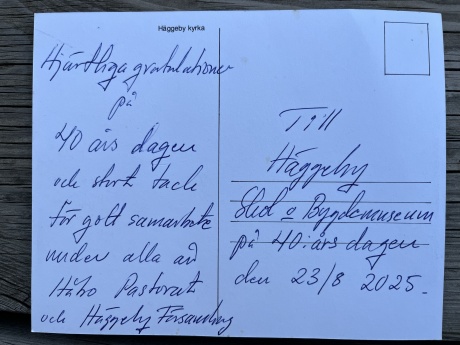 Häggeby kyrka
Hjärtliga gratulationer
på
40 års dagen
och stort tack
för gott samarbete
under alla år
Håbo Pastorat
och Häggeby Församling
Till
Häggeby
Sled o Bygdemuseum
på 40-års dagen
den 23/8 2025.